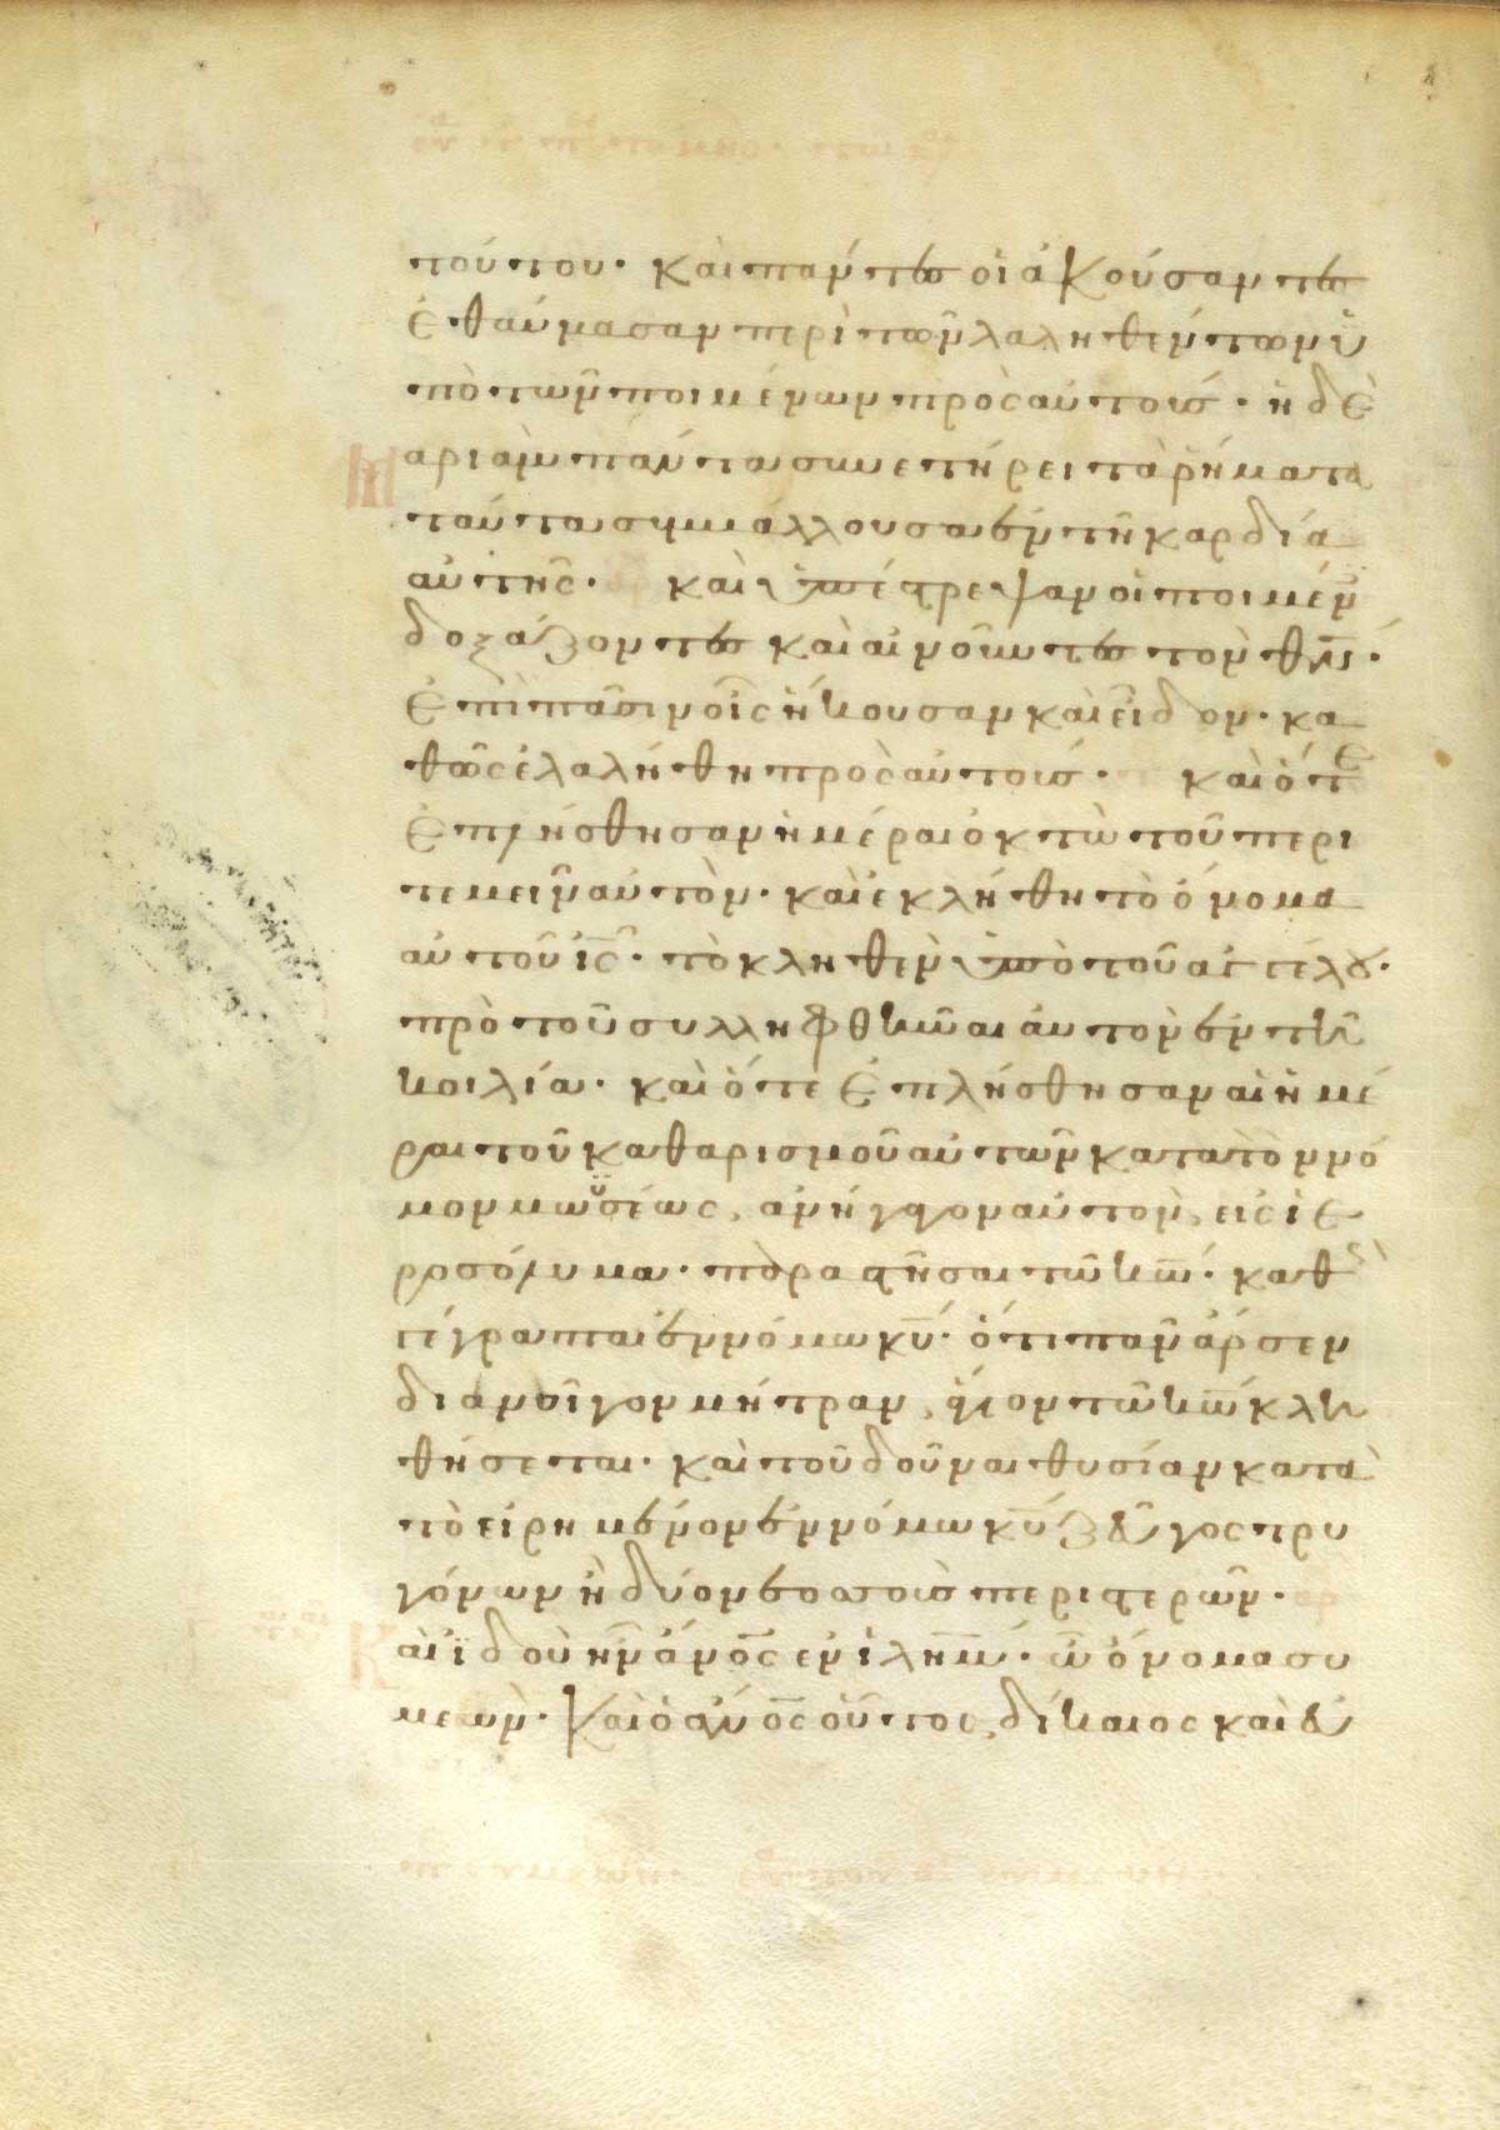 τούτου· καὶ πάντες οἱ ἀκούσαντες
ἐθαύμασαν περὶ τῶν λαληθέντων ὑ
πὸ τῶν ποιμένων πρὸς αὐτούς· ἡ δὲ
Μαριὰμ πάντα συνετήρει τὰ ῥήματα
ταῦτα συμβάλλουσα ἐν τῆ καρδία
αὐτῆς· καὶ ὑπέστρεψαν οἱ ποιμέν
δοξάζοντες καὶ αἰνοῦντες τὸν θ̅ν̅·
ἐπὶ πᾶσιν οἷς ἤκουσαν καὶ εἶδον· κα
θὼς ἐλαλήθη πρὸς αὐτούς· καὶ ὅτε
ἐπλήσθησαν ἡμέραι ὀκτὼ τοῦ περι
τεμεῖν αὐτόν· καὶ ἐκλήθη τὸ ὄνομα
αὐτοῦ ι̅ς̅· τὸ κληθὲν ὑπὸ τοῦ ἀγγέλου·
πρὸ τοῦ συλληφθῆναι αὐτὸν ἐν τῆ
κοιλία· καὶ ὅτε ἐπλήσθησαν αἱ ἡμέ
ραι τοῦ καθαρισμοῦ αὐτῶν κατὰ τὸν νό
μον μωϋσέως, ἀνήγαγον αὐτὸν, εἰς ἱε
ροσόλυμα· παραστῆσαι τῶ κ̅ω̅· καθὼς
γέγραπται ἐν νόμω κ̅υ̅· ὅτι πᾶν ἄρσεν
διανοῖγον μήτραν, ἅγιον τῶ κ̅ω̅ κλη
θήσεται· καὶ τοῦ δοῦναι θυσίαν κατὰ
τὸ εἰρημένον ἐν νόμω κ̅υ̅ ζεῦγος τρυ
γόνων ἢ δύο νεοσσοὺς περιστερῶν·
Καὶ ἰδοὺ ἦν α̅ν̅ο̅ς̅ ἐν ἱ̅λ̅η̅μ̅· ὧ ὄνομα συ
μεών· καὶ ὁ α̅ν̅ο̅ς̅ οὗτος, δίκαιος καὶ εὐ